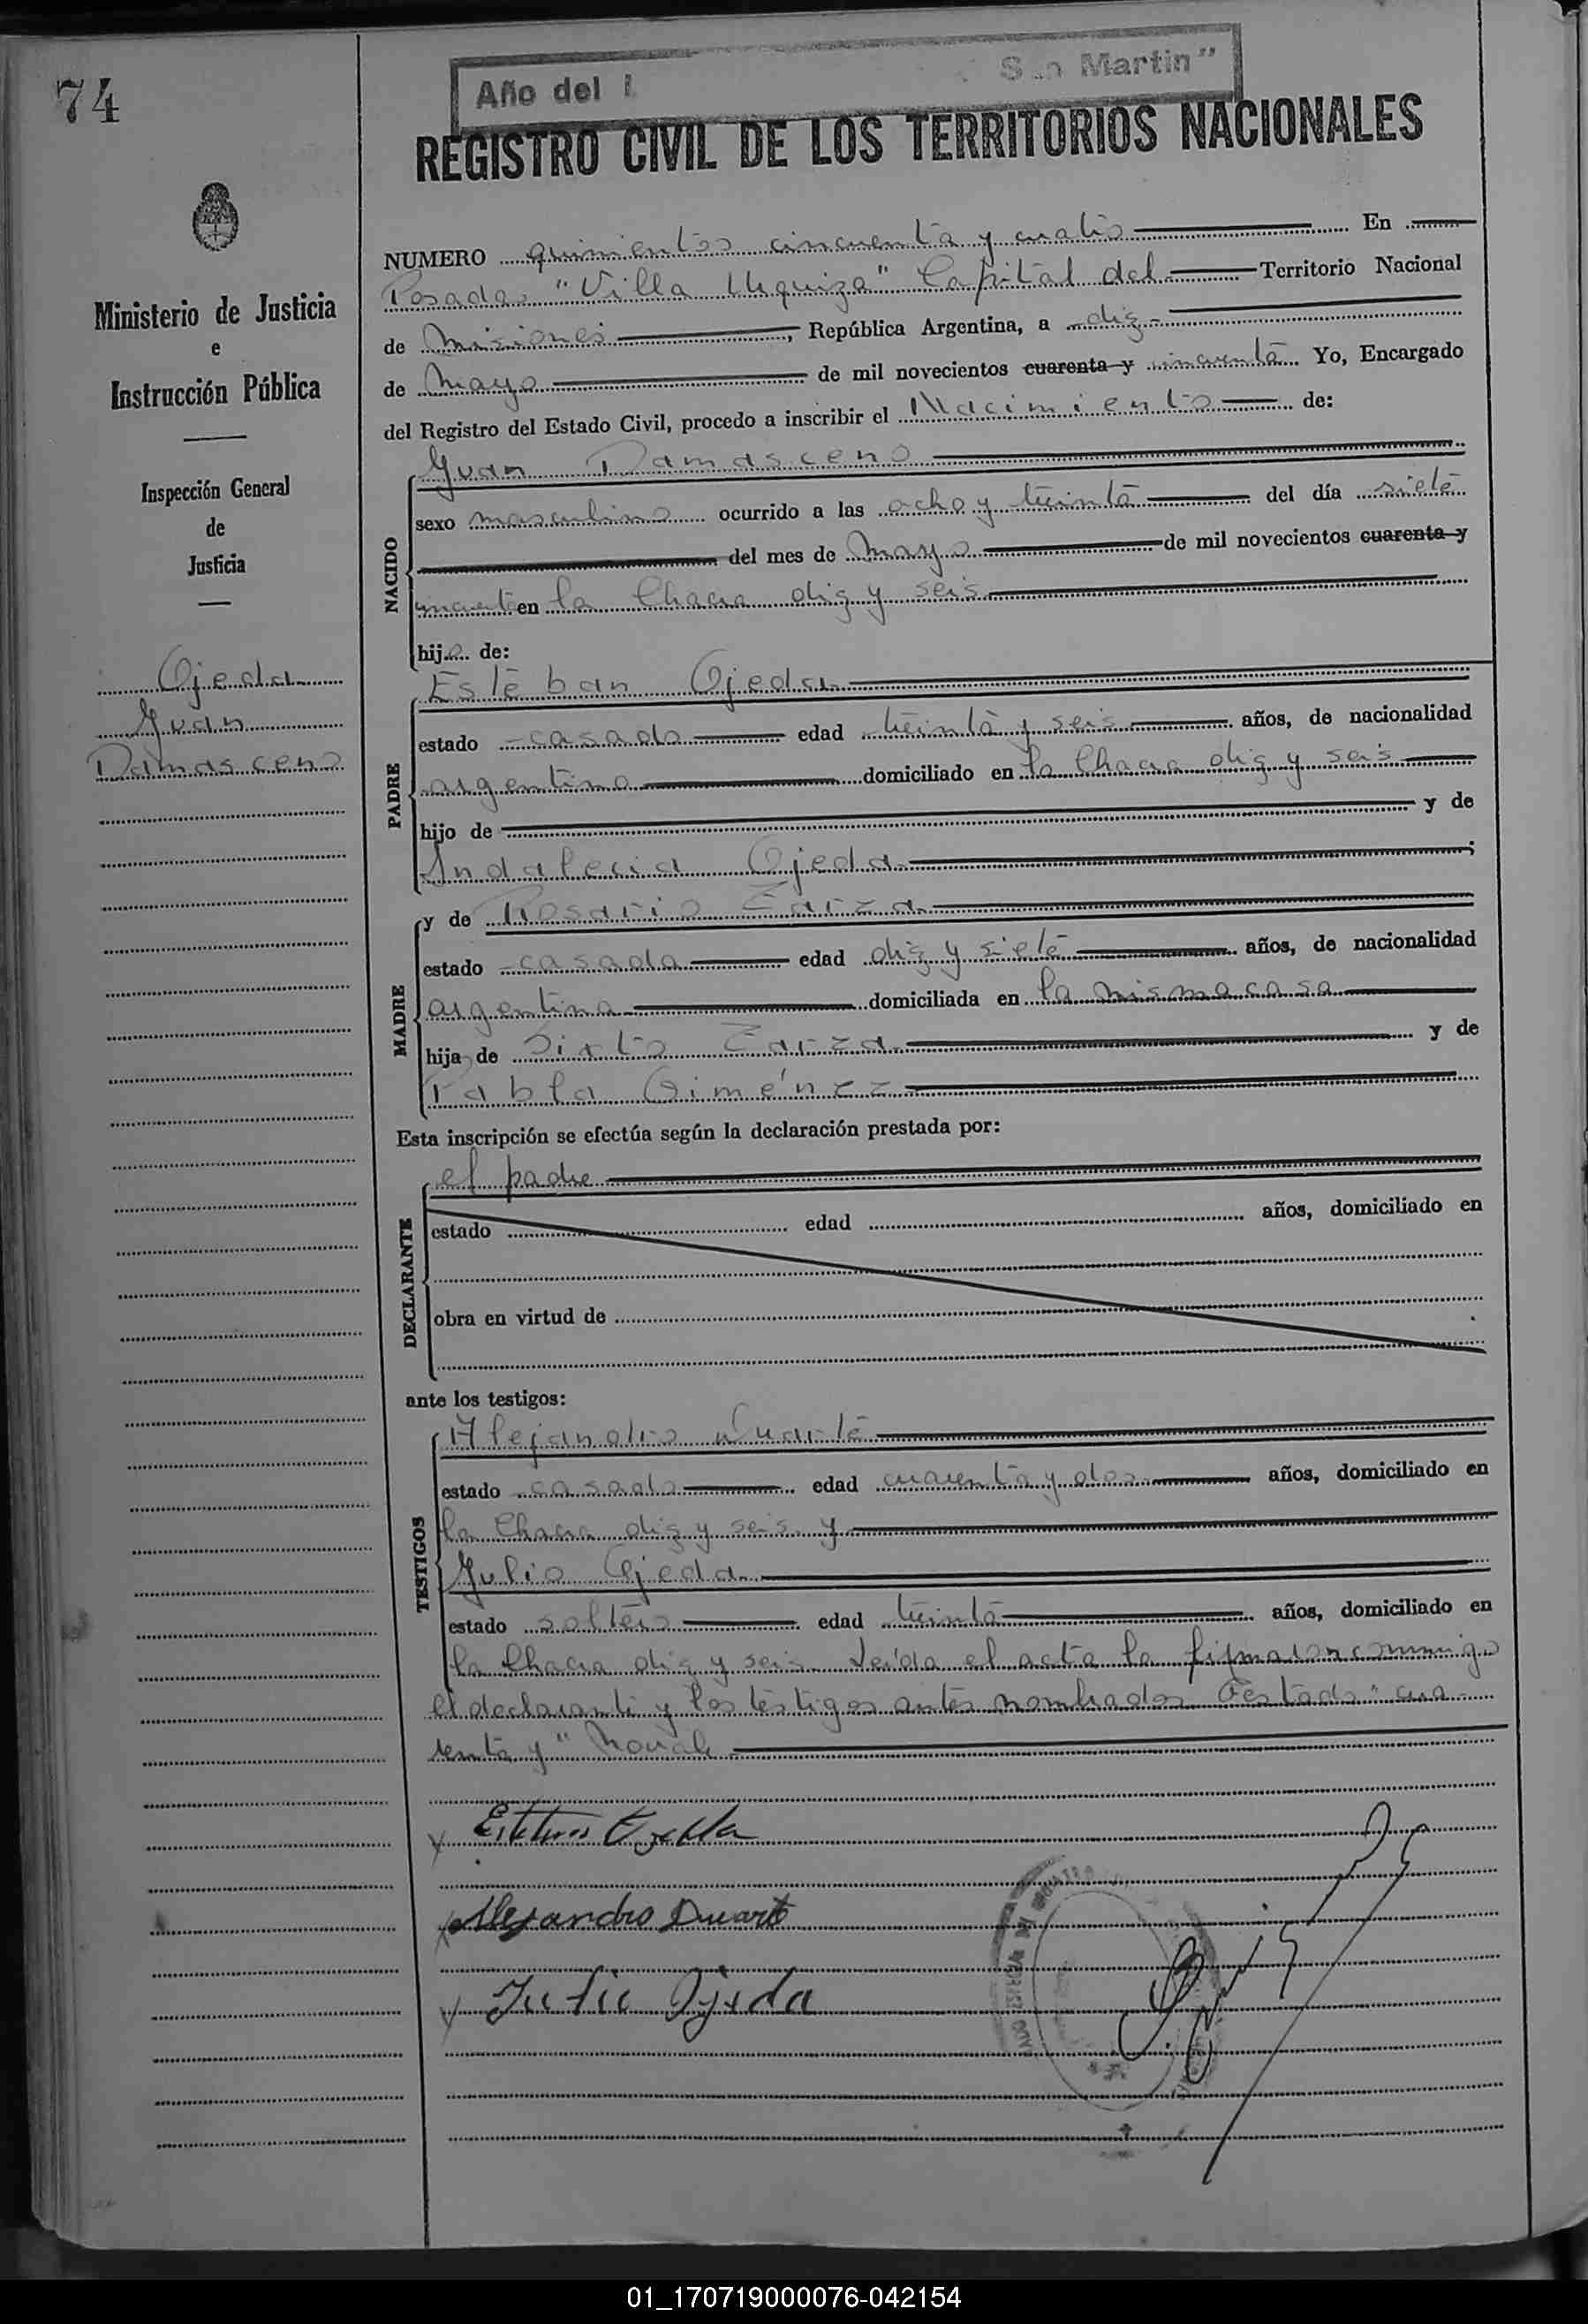 74
Año del L S n Martin"
REGISTRO CIVIL DE LOS TERRITORIOS NACIONALES
Ministerio de Justicia
e
Instrucción Pública
Inspección General
de
Justicia
Ojeda
Juan
Damasceno
NUMERO quinientos cincuenta y cuatro En
Posadas "Villa Urquiza" Capital del Territorio Nacional
de Misiones, República Argentina, a diez
de Mayo de mil novecientos cuarenta y cincuenta Yo, Encargado
del Registro del Estado Civil, procedo a inscribir el Nacimiento de:
NACIDO
Juan Damasceno
sexo masculino ocurrido a las ocho y treinta del día siete
del mes de Mayo de mil novecientos cuarenta y
cincuenta en la Chacra diez y seis
hijo de:
PADRE
Esteban Ojeda
estado casado edad treinta y seis años, de nacionalidad
argentino domiciliado en la Chacra diez y seis
hijo de y de
Indalecia Ojeda;
MADRE
y de Rosario Zarza
estado casada edad diez y siete años, de nacionalidad
argentina domiciliada en la misma casa
hija de Sixto Zarza y de
Pabla Giménez
Esta inscripción se efectúa según la declaración prestada por:
DECLARANTE
el padre
estado edad años, domiciliado en
obra en virtud de
ante los testigos:
TESTIGOS
Alejandro Duarte
estado casado edad cuarenta y dos años, domiciliado en
la Chacra diez y seis y
Julio Ojeda
estado soltero edad treinta años, domiciliado en
la Chacra diez y seis. Leída el acta la firmaron conmigo
el declarante y los testigos antes nombrados. Testado "cua-
renta y" Novale
Esteban Ojeda
Alejandro Duarte
Julio Ojeda
01_170719000076-042154